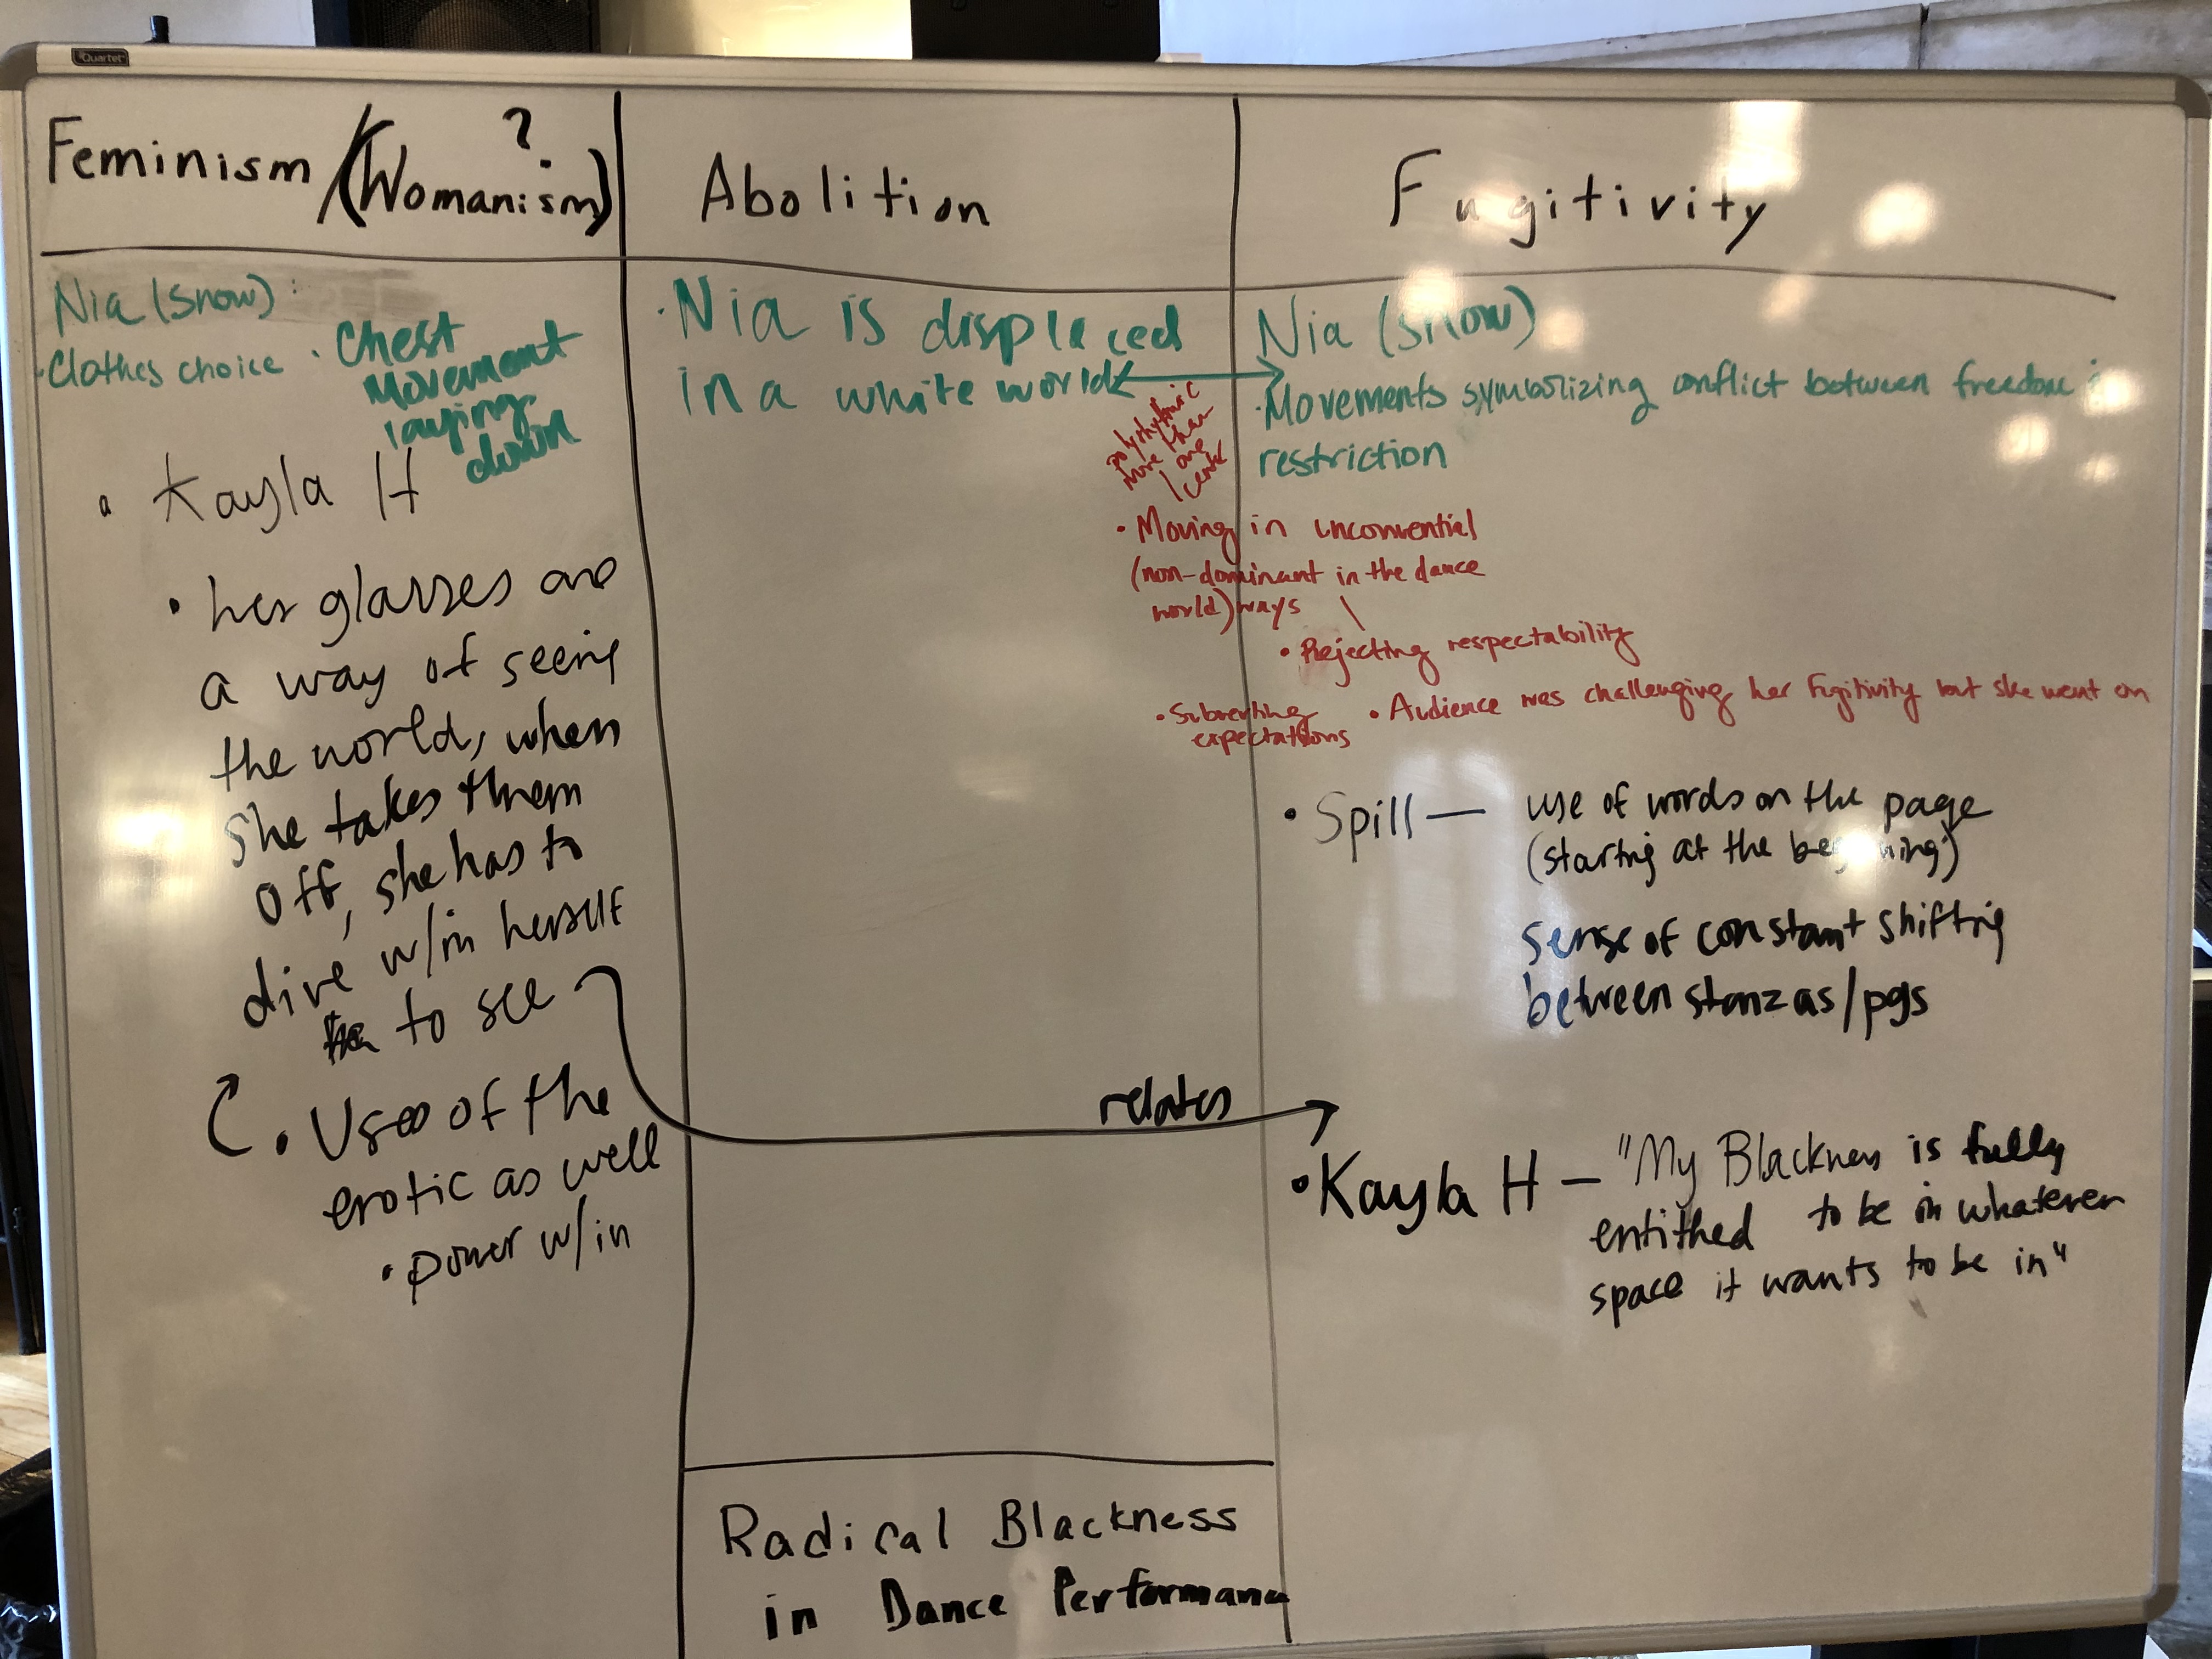 Quartet
Feminism /(Womanism)
?
Nia (snow) :
· Clothes choice
· Chest
Movement
laying
down
· Kayla H
· her glasses are
a way of seeing
the world, when
she takes them
off, she has to
dive w/in herself
to see
· Uses of the
erotic as well
· power w/in
Abolition
· Nia is displaced
in a white world
polyrhythmic
more than
one
relates
Radical Blackness
in Dance Performance
Fugitivity
Nia (snow)
· Movements symbolizing conflict between freedom :
restriction
· Moving in unconvential
(non-dominant in the dance
world) ways
· Rejecting respectability
· Subverting
expectations
· Audience was challenging her fugitivity but she went on
· Spill — use of words on the page
(starting at the beginning)
sense of constant shifting
between stanzas/pgs
· Kayla H — "My Blackness is fully
entithed to be in whatever
space it wants to be in"